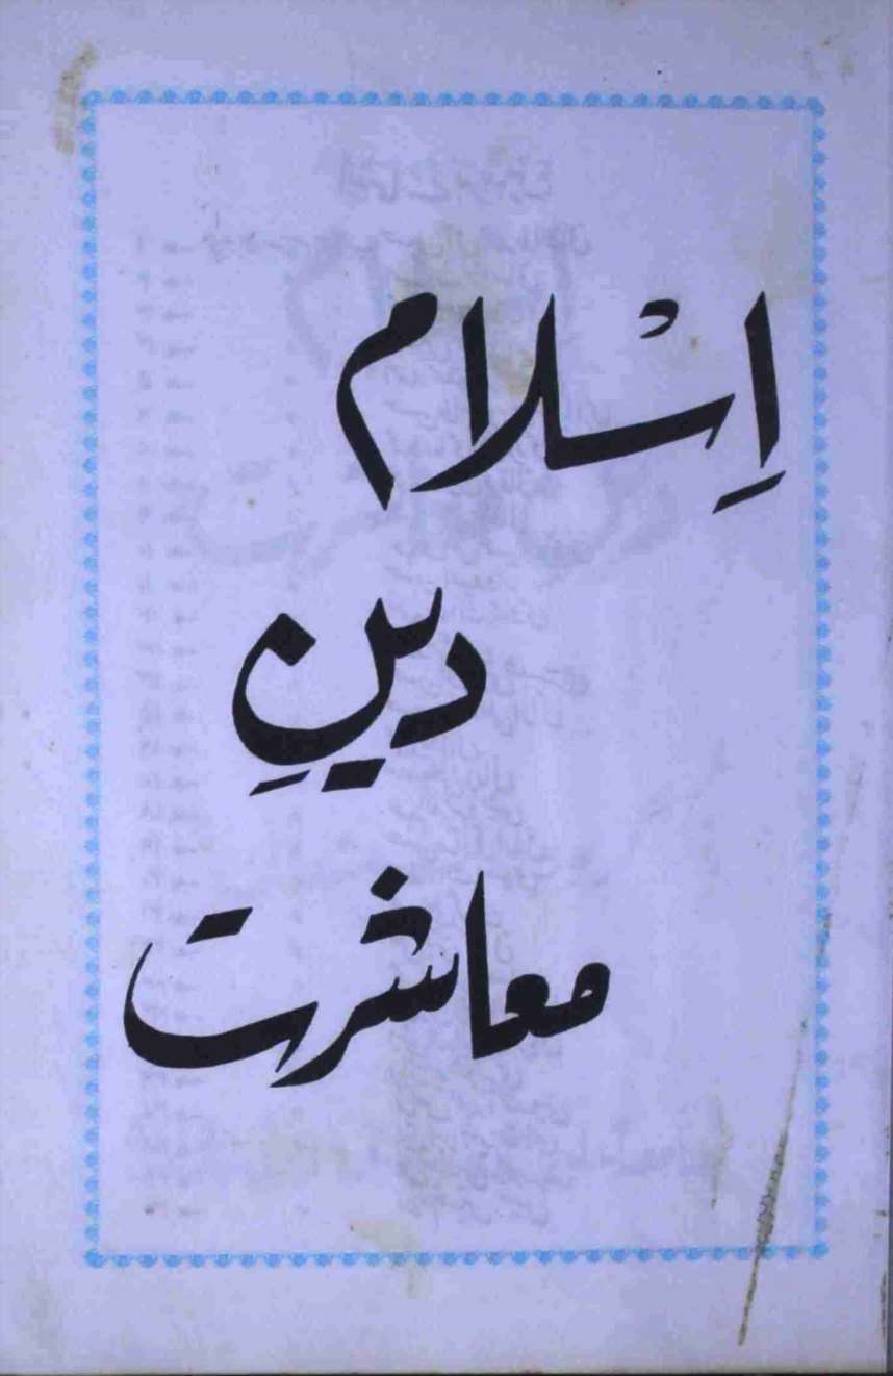 اِسْلام
دینِ
معاشرت